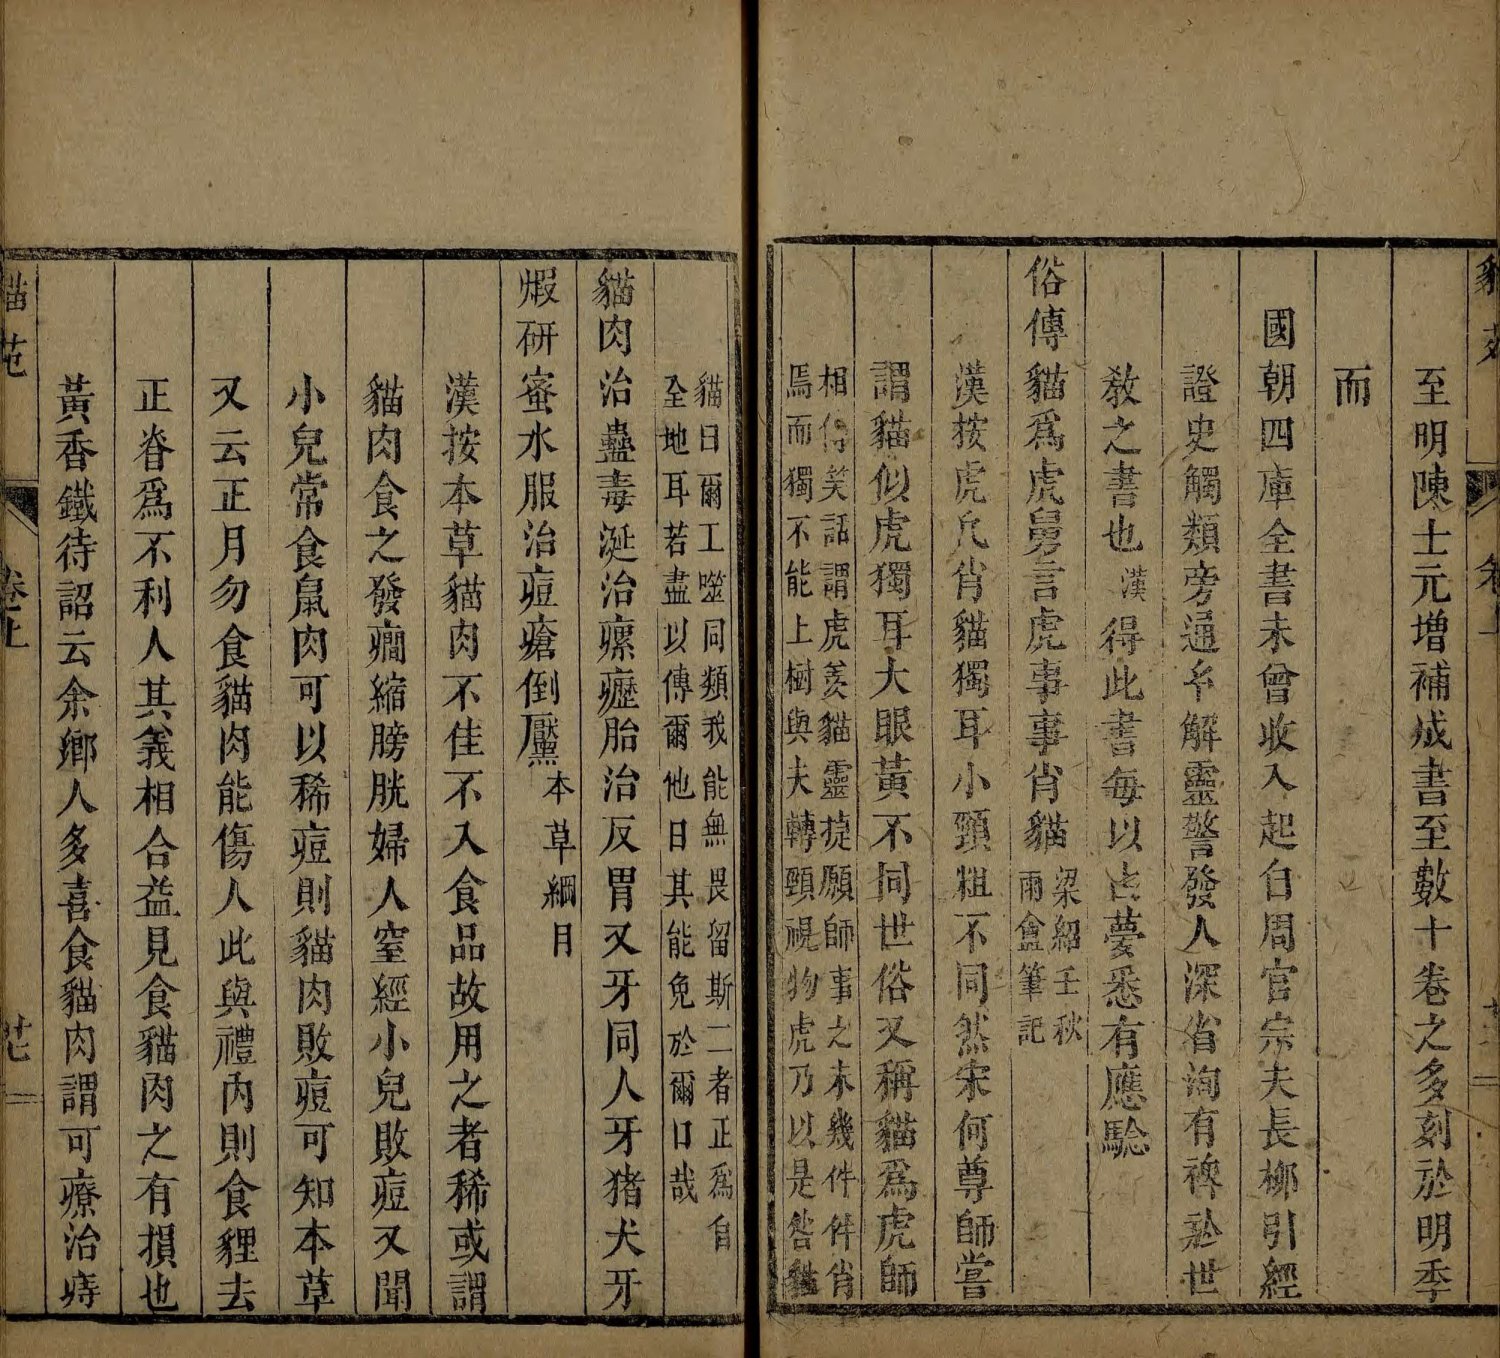 貓苑
卷上
至明陳士元增補成書至數十卷之多刻於明季
而
國朝四庫全書未曾收入起自周官宗夫長柳引經
證史觸類旁通兮解靈警發人深省洵有裨於世
教之書也漢得此書每以占夢悉有應驗
俗傳貓爲虎舅言虎事事肖貓梁紹壬秋
雨盦筆記
漢按虎凡肖貓獨耳小頸粗不同然宋何尊師嘗
謂貓似虎獨耳大眼黃不同世俗又稱貓爲虎師
相傳笑話謂虎羨貓靈捷願師事之未幾件件肖
焉而獨不能上樹與夫轉頸視物虎乃以是咎貓
貓曰爾工噬同類我能無畏留斯二者正爲自
全地耳若盡以傳爾他日其能免於爾口哉
貓肉治蠱毒涎治瘰癧胎治反胃又牙同人牙猪犬牙
煆研蜜水服治痘瘡倒黶本草綱目
漢按本草貓肉不佳不入食品故用之者稀或謂
貓肉食之發癇縮膀胱婦人窒經小兒敗痘又聞
小兒常食鼠肉可以稀痘則貓肉敗痘可知本草
又云正月勿食貓肉能傷人此與禮內則食貍去
正脊爲不利人其義相合益見食貓肉之有損也
黃香鐵待詔云余鄉人多喜食貓肉謂可療治痔
貓苑
卷上
廿七